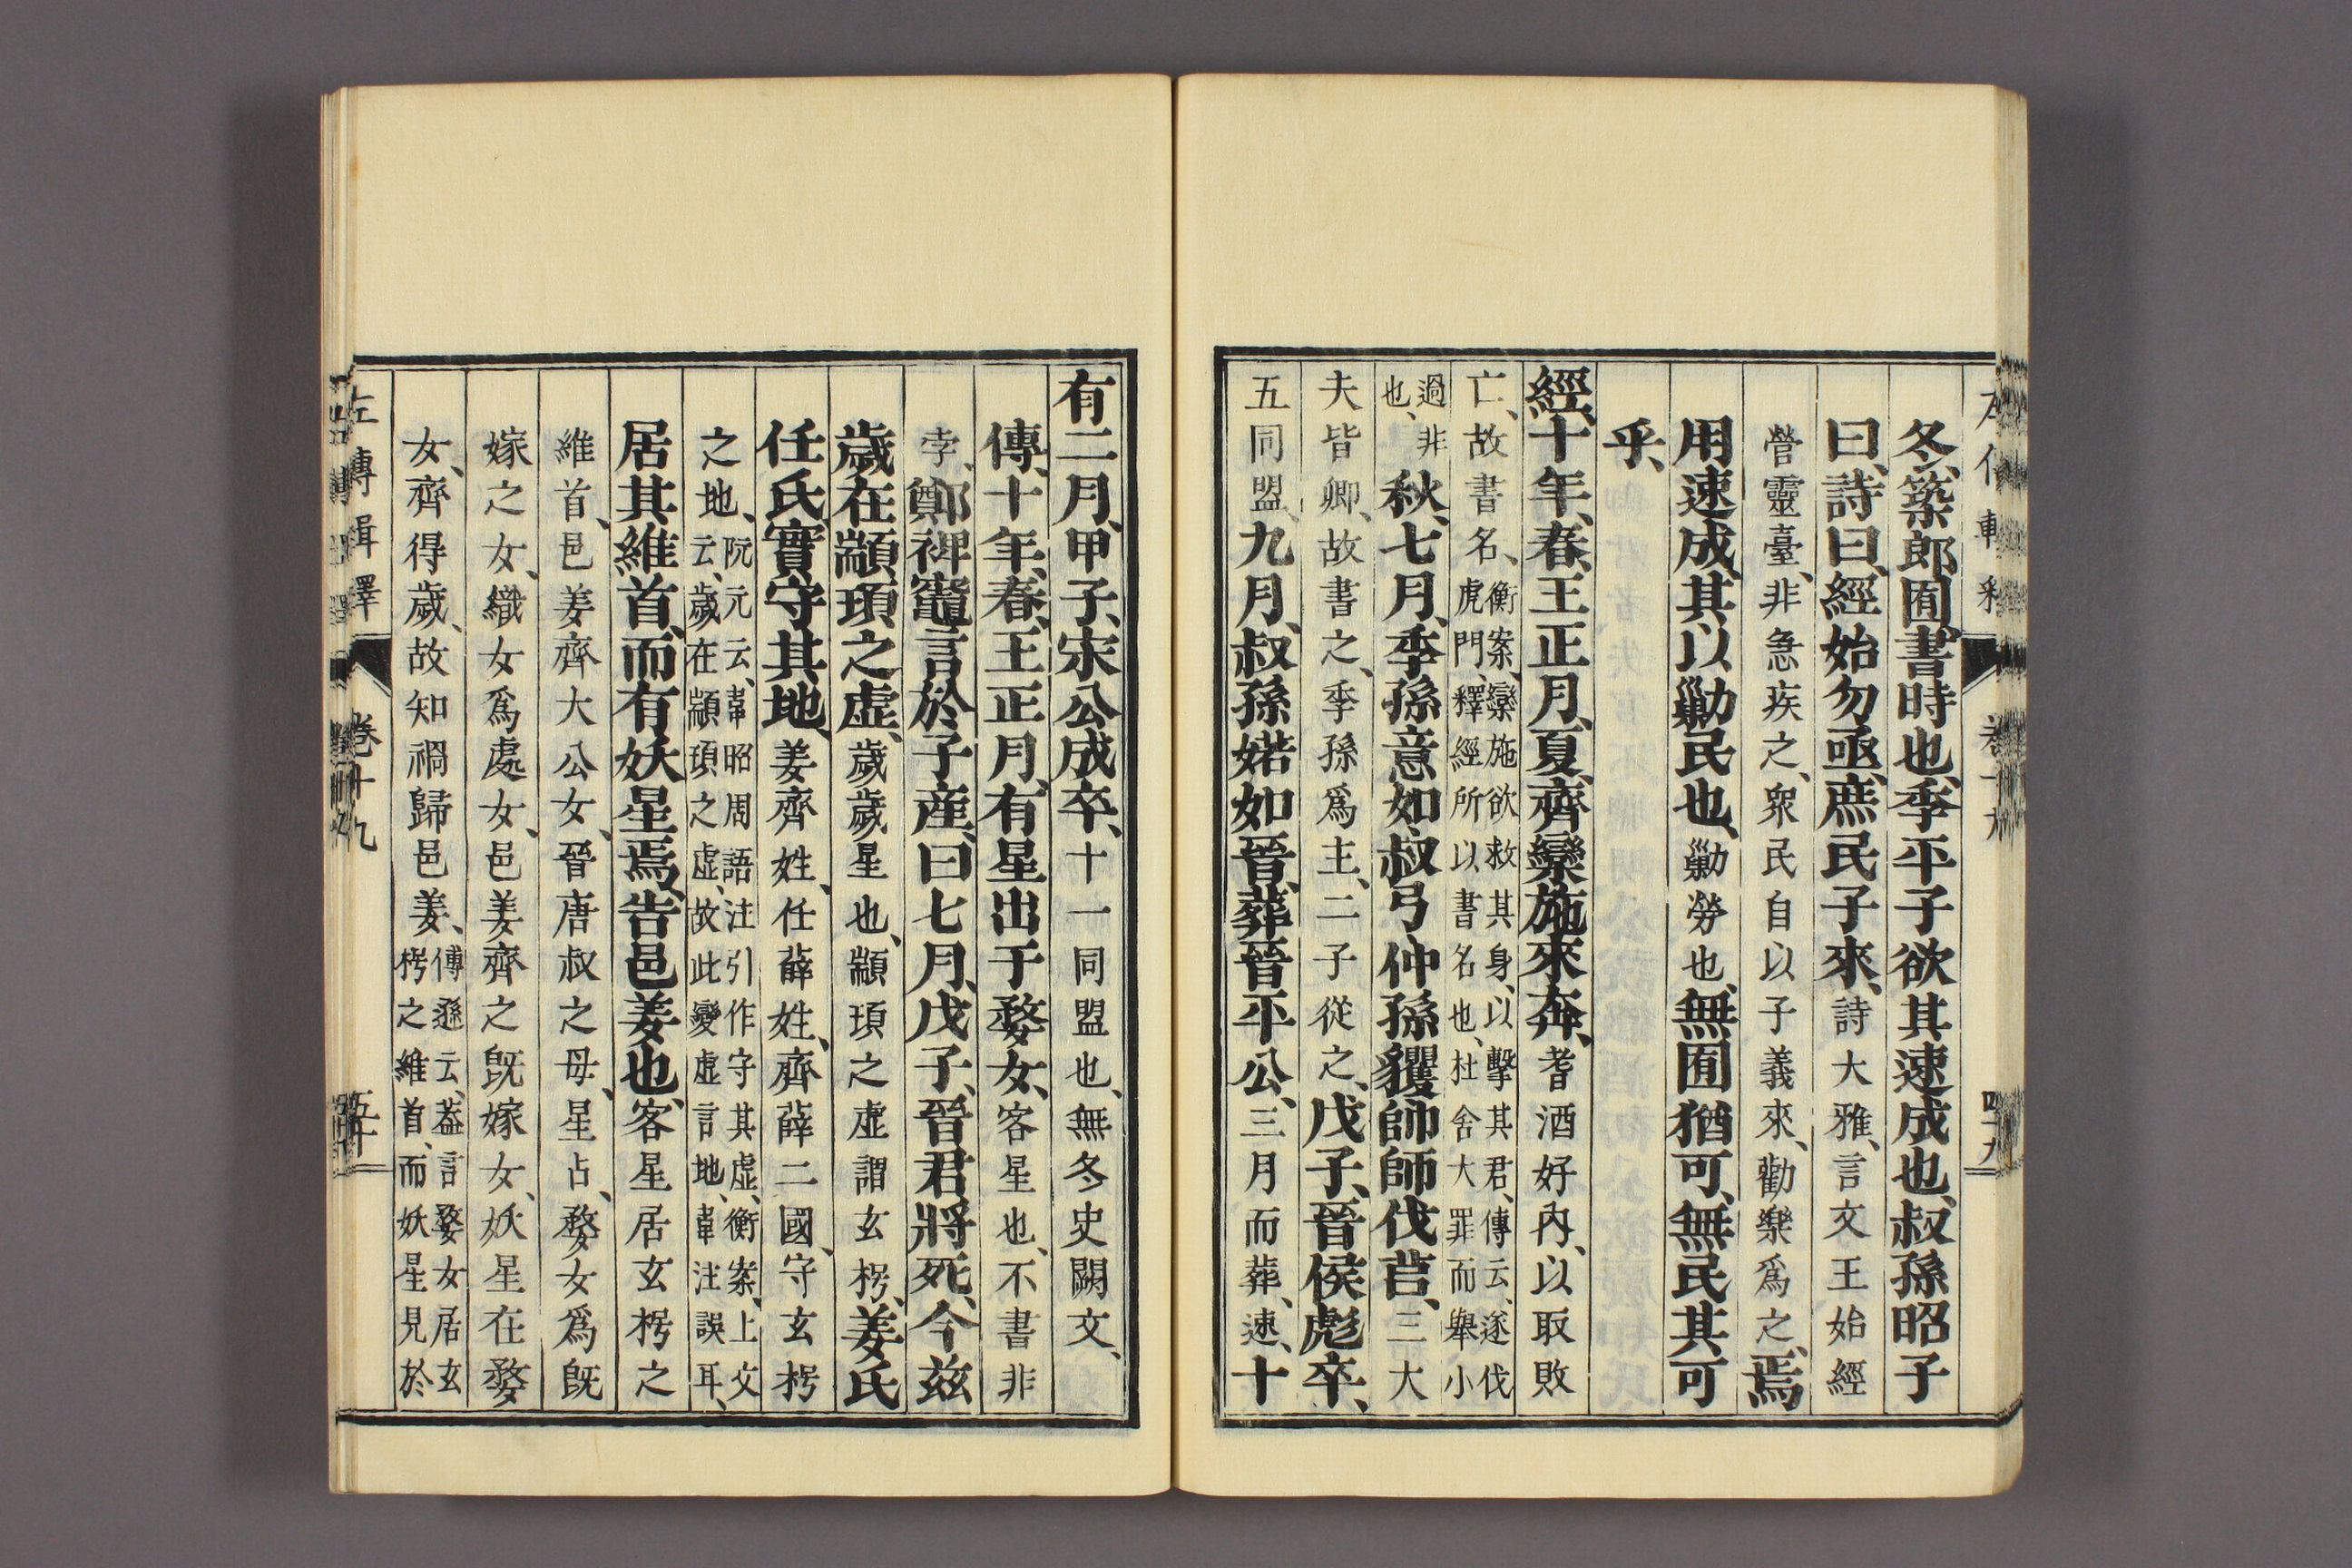 冬、築郎囿、書時也、季平子欲其速成也、叔孫昭子
曰、詩曰、經始勿亟、庶民子來、詩大雅、言文王始經
營靈臺、非急疾之、衆民自以子義來、勸樂爲之、焉
用速成、其以勦民也、勦勞也、無囿猶可、無民其可
乎、
經、十年、春、王正月、夏、齊欒施來奔、耆酒好內、以取敗
亡、故書名、衡案、欒施欲救其身、以擊其君、傳云、遂伐
虎門、釋經所以書名也、杜舍大罪而舉小
過非
也、秋、七月、季孫意如、叔弓、仲孫貜帥師伐莒、三大
夫皆卿、故書之、季孫爲主、二子從之、戊子、晉侯彪卒、
五同盟、九月、叔孫婼如晉、葬晉平公、三月而葬、速、十
卷十九
四十九
有二月、甲子、宋公成卒、十一同盟也、無冬史闕文、
傳、十年、春、王正月、有星出于婺女、客星也、不書非
孛、鄭裨竈言於子產、曰七月、戊子、晉君將死、今茲
歲在顓頊之虛、歲歲星也、顓頊之虛謂玄枵、姜氏
任氏實守其地、姜齊姓、任薛姓、齊薛二國、守玄枵
之地、阮元云、韋昭周語注引作守其虛、衡案、上文
云、歲在顓頊之虛、故此變虛言地、韋注誤耳、
居其維首、而有妖星焉、告邑姜也、客星居玄枵之
維首、邑姜齊大公女、晉唐叔之母、星占、婺女爲旣
嫁之女、織女爲處女、邑姜齊之旣嫁女、妖星在婺
女、齊得歲、故知禍歸邑姜、傅遜云、蓋言婺女居玄
枵之維首、而妖星見於
左傳輯釋
卷十九
五十